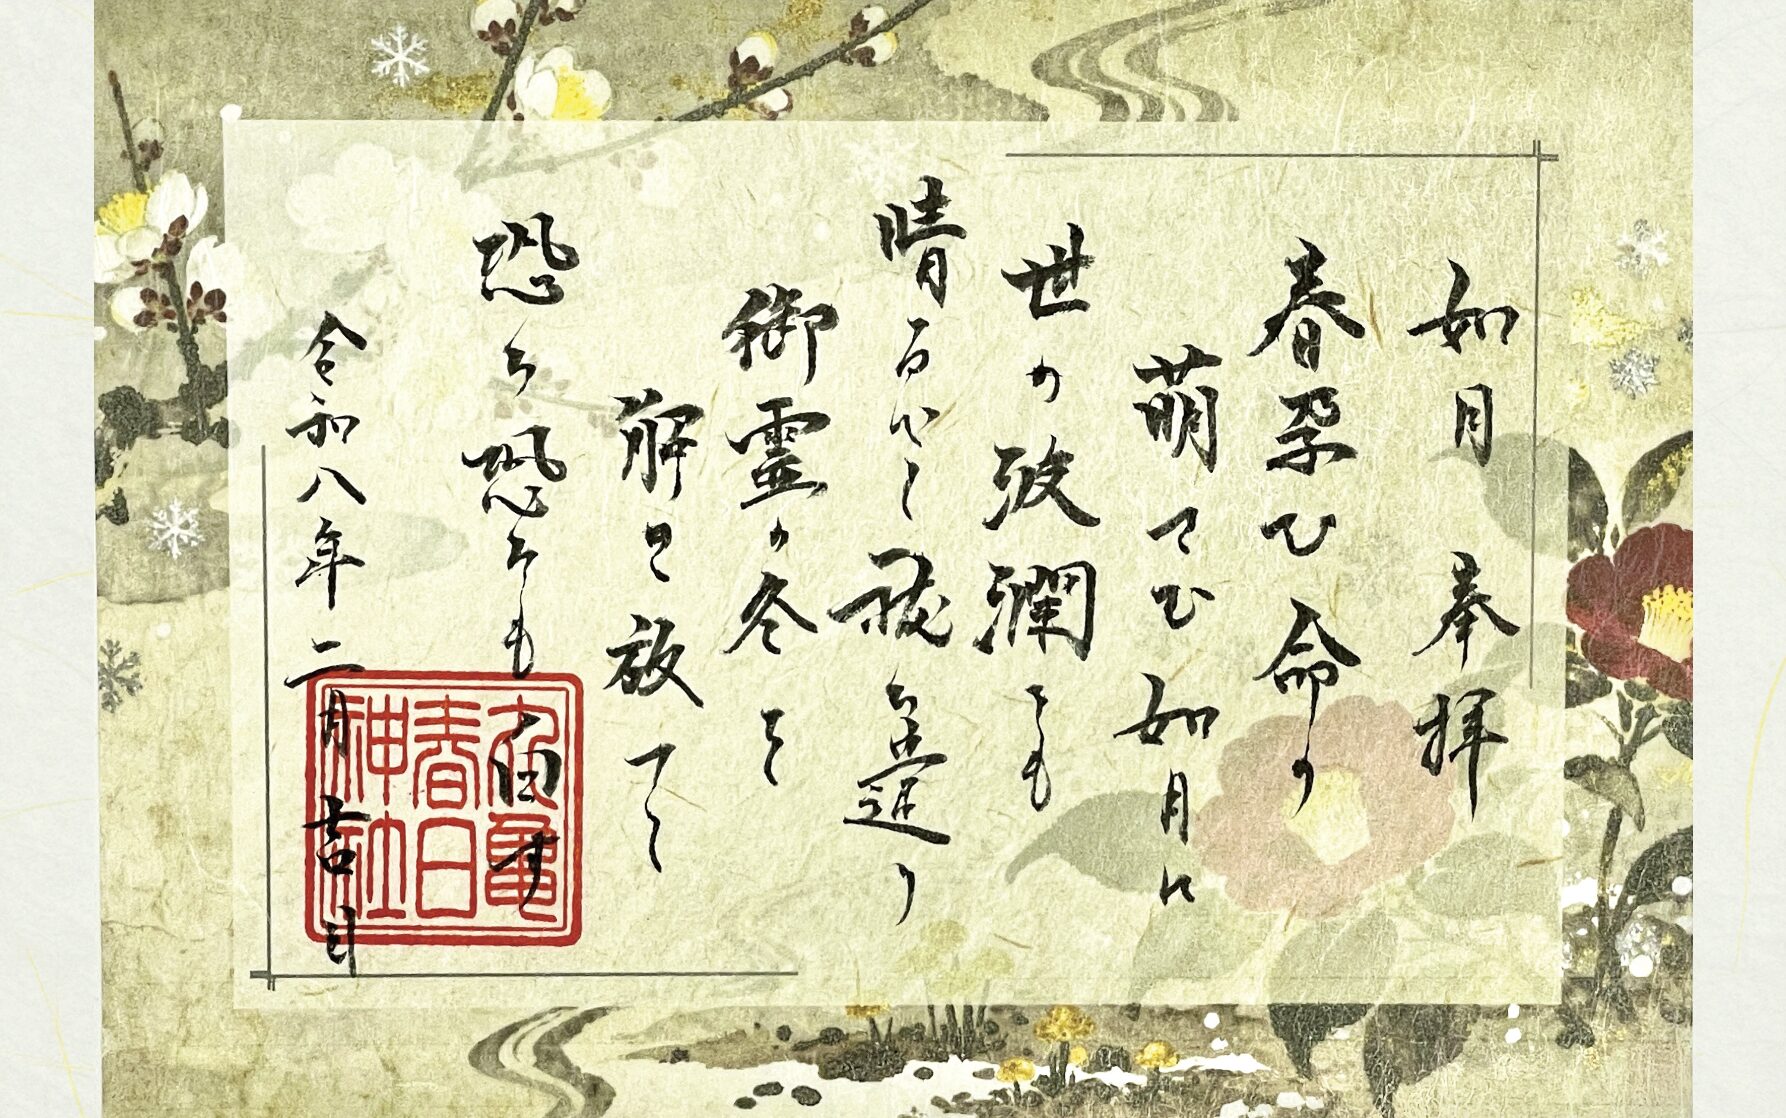 如月 奉拝
春孕む命の
萌てむ如月に
世の波瀾とも
晴る 祓 遣り
御霊の冬を
解き放て
恐み恐みも白す
令和八年二月吉日
丸亀
春日
神社